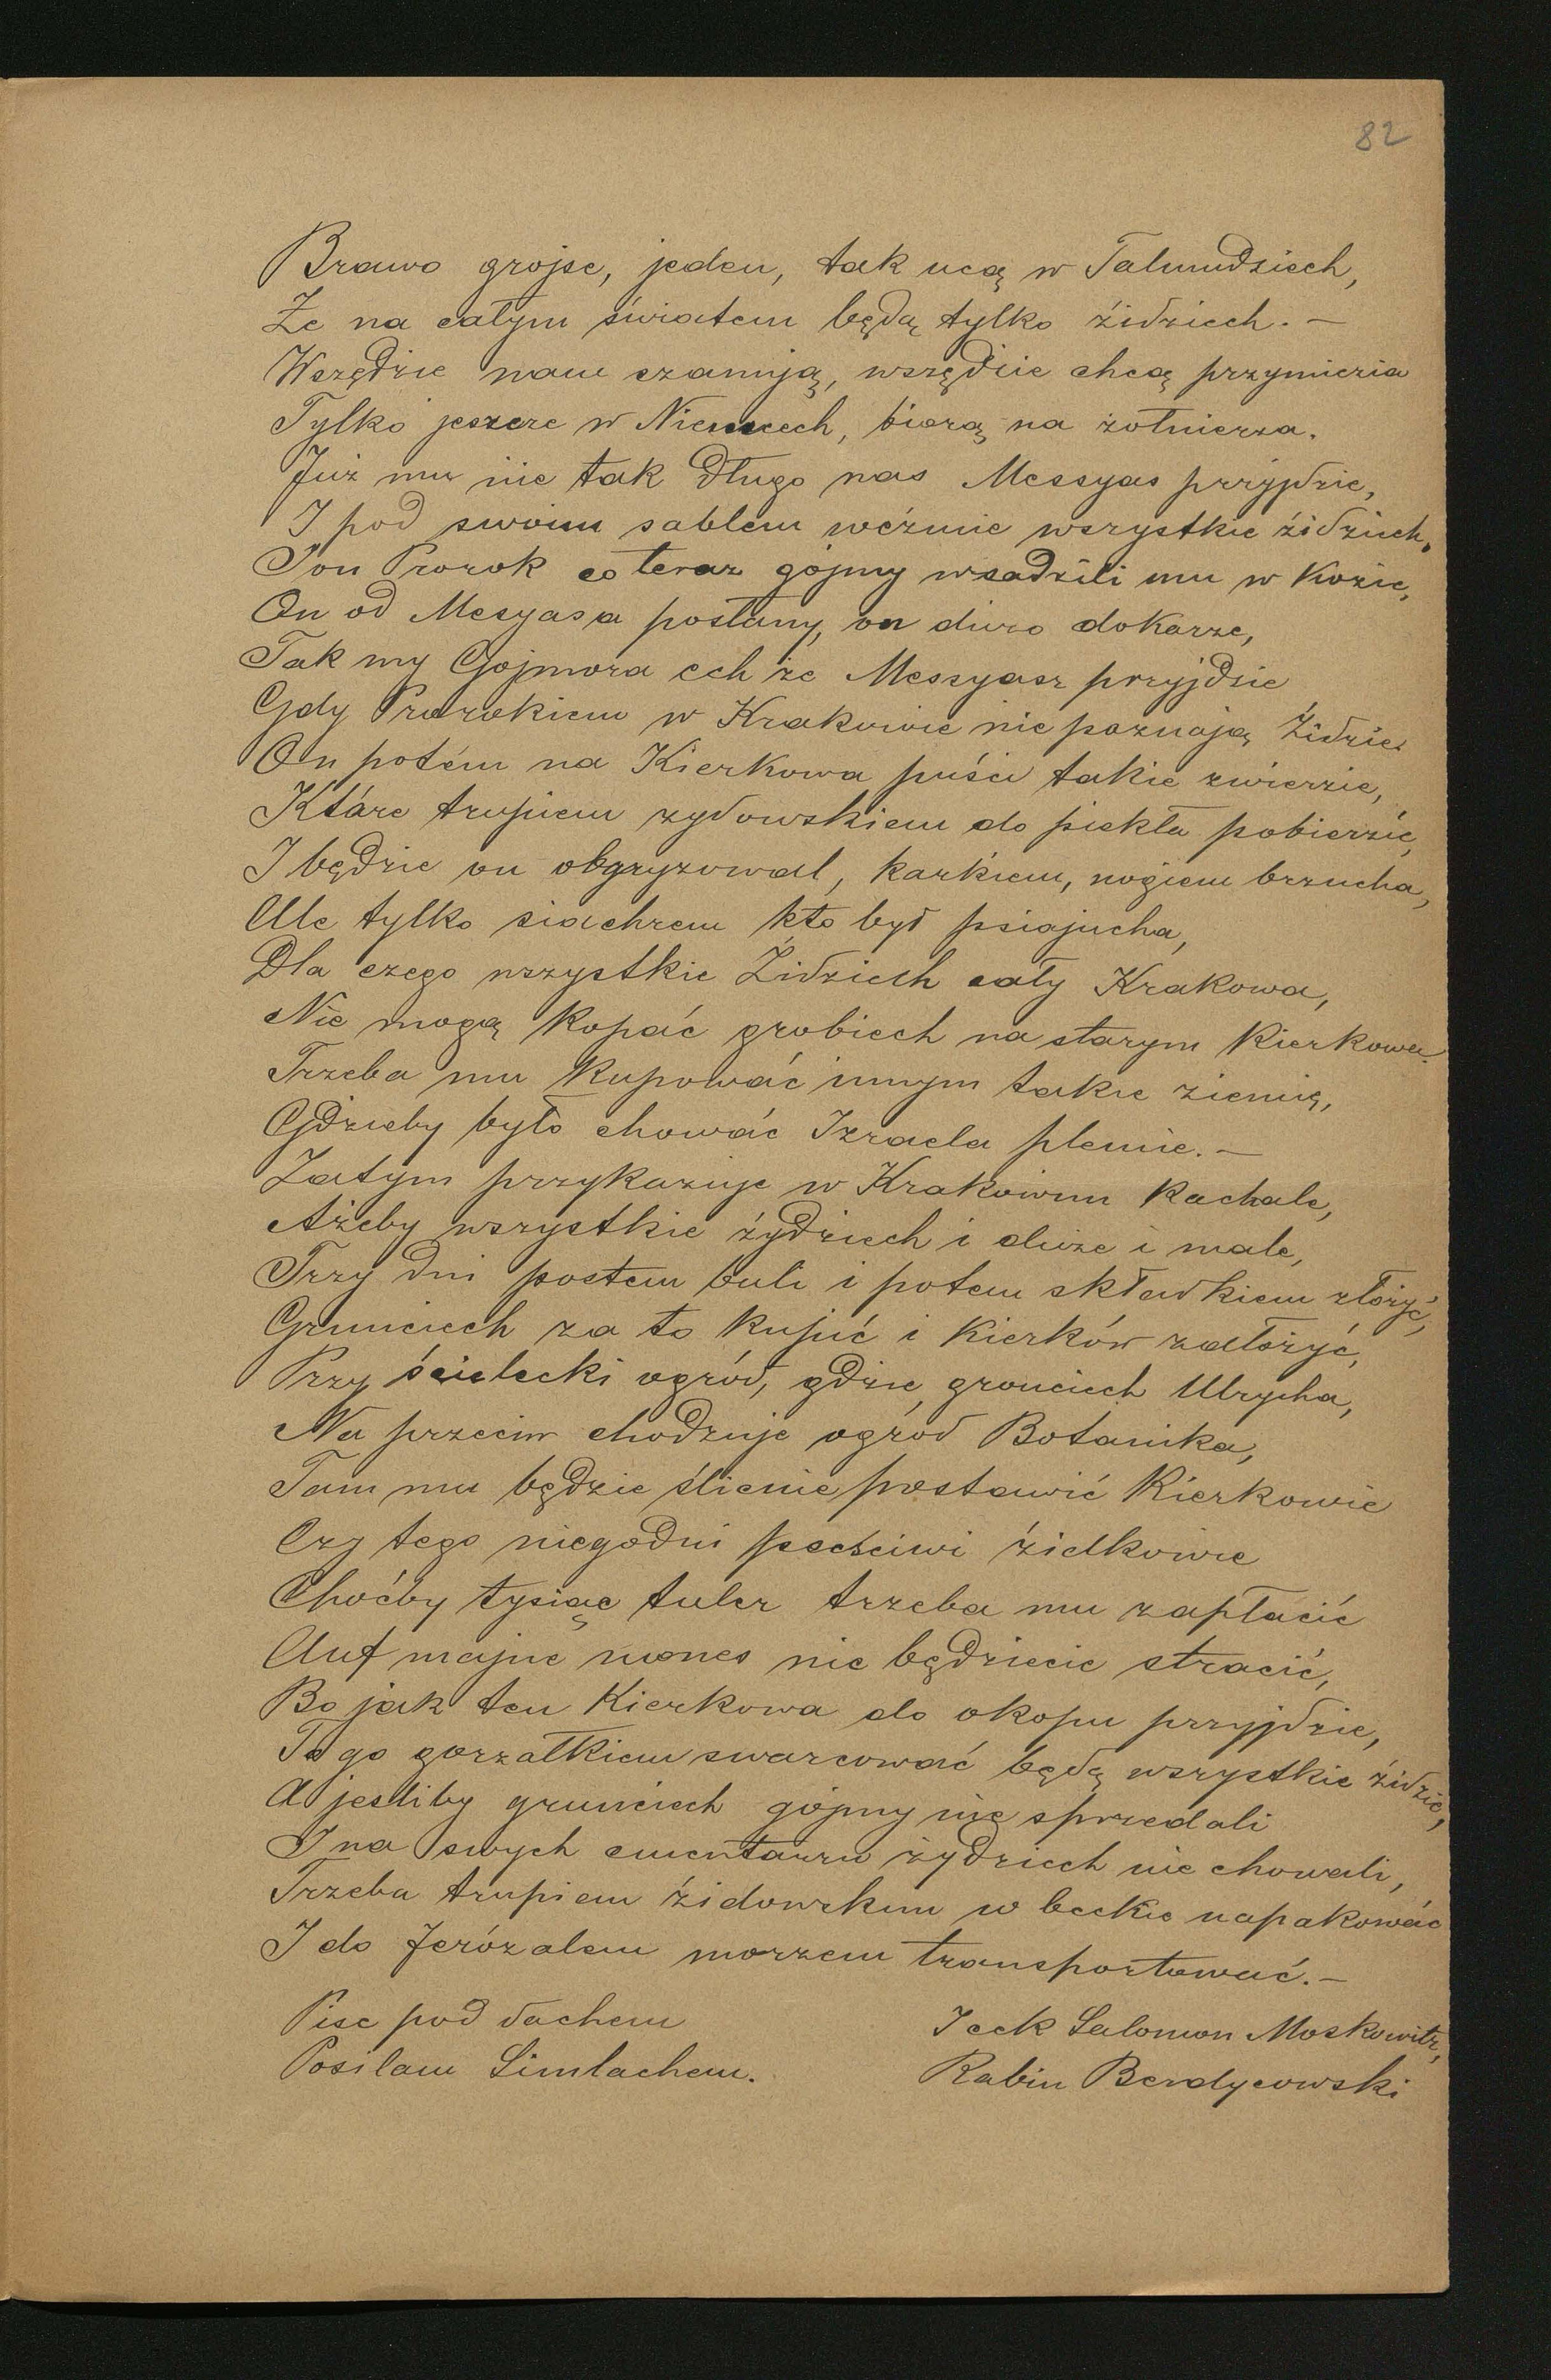 82
Brawo grojse, jeden, tak ucą w Talmudziech,
Że na całym światem będą tylko źidziech. —
Wszędzie nam szanują, wszędzie chcą przymierza
Tylko jeszcze w Niemcech, biorą na żołnierza.
Już mu nie tak długo nas Messyas przyjdzie,
I pod swoim sablem weźmie wszystkie źidziech,
Ton Prorok co teraz gójmy wsadzili mu w Kozie,
On od Mesyasa posłany, on duzo dokaze,
Tak my Gojmora ech że Messyasz przyjdzie
Gdy Prorokiem w Krakowie nie poznają Żidzie
On potém na Kierkowa puści takie zwierzie,
Któŕe trupiem zydowskiem do piekła pobierzie,
I będzie on obgryzowal, karkiem, nogiem brzucha,
Ale tylko siachrem kto był psiajucha,
Dla czego wszystkie Żidziech cały Krakowa,
Nie mogą kopać grobiech na starym Kierkowa.
Trzeba mu kupować innym takie ziemię,
Gdzieby było chować Izraela plemie. —
Zatym przykazuje w Krakowim Kachale,
Ażeby wszystkie żydziech i duże i małe,
Trzy dni postem buli i potem składkiem złożyć,
Grunciech za to kupić i Kierków założyć,
Przy ścielecki ogród, gdzie grunciech Ulrycha,
Na przeciw chodzuje ogród Botanika,
Tam mu będzie ślicnie postawić Kierkowie
Czy tego niegodni pocściwi źidkowie
Choćby tysiąc taler trzeba mu zapłacić
Auf majne mones nie będziecie stracić,
Bo jak ten Kierkowa do okopu przyjdzie,
To go gorzałkiem swarcować będą wszystkie źidzie,
A jesliby grunciech gojmy nie sprzedali
I na swych cmentarzu żydziech nie chowali,
Trzeba trupiem źidowskim w beckie napakować
I do Jerózalem morzem transportować. —
Pise pod dachem
Posilam Simlachem.
Icek Salomon Moskowitz,
Rabin Berdycowski